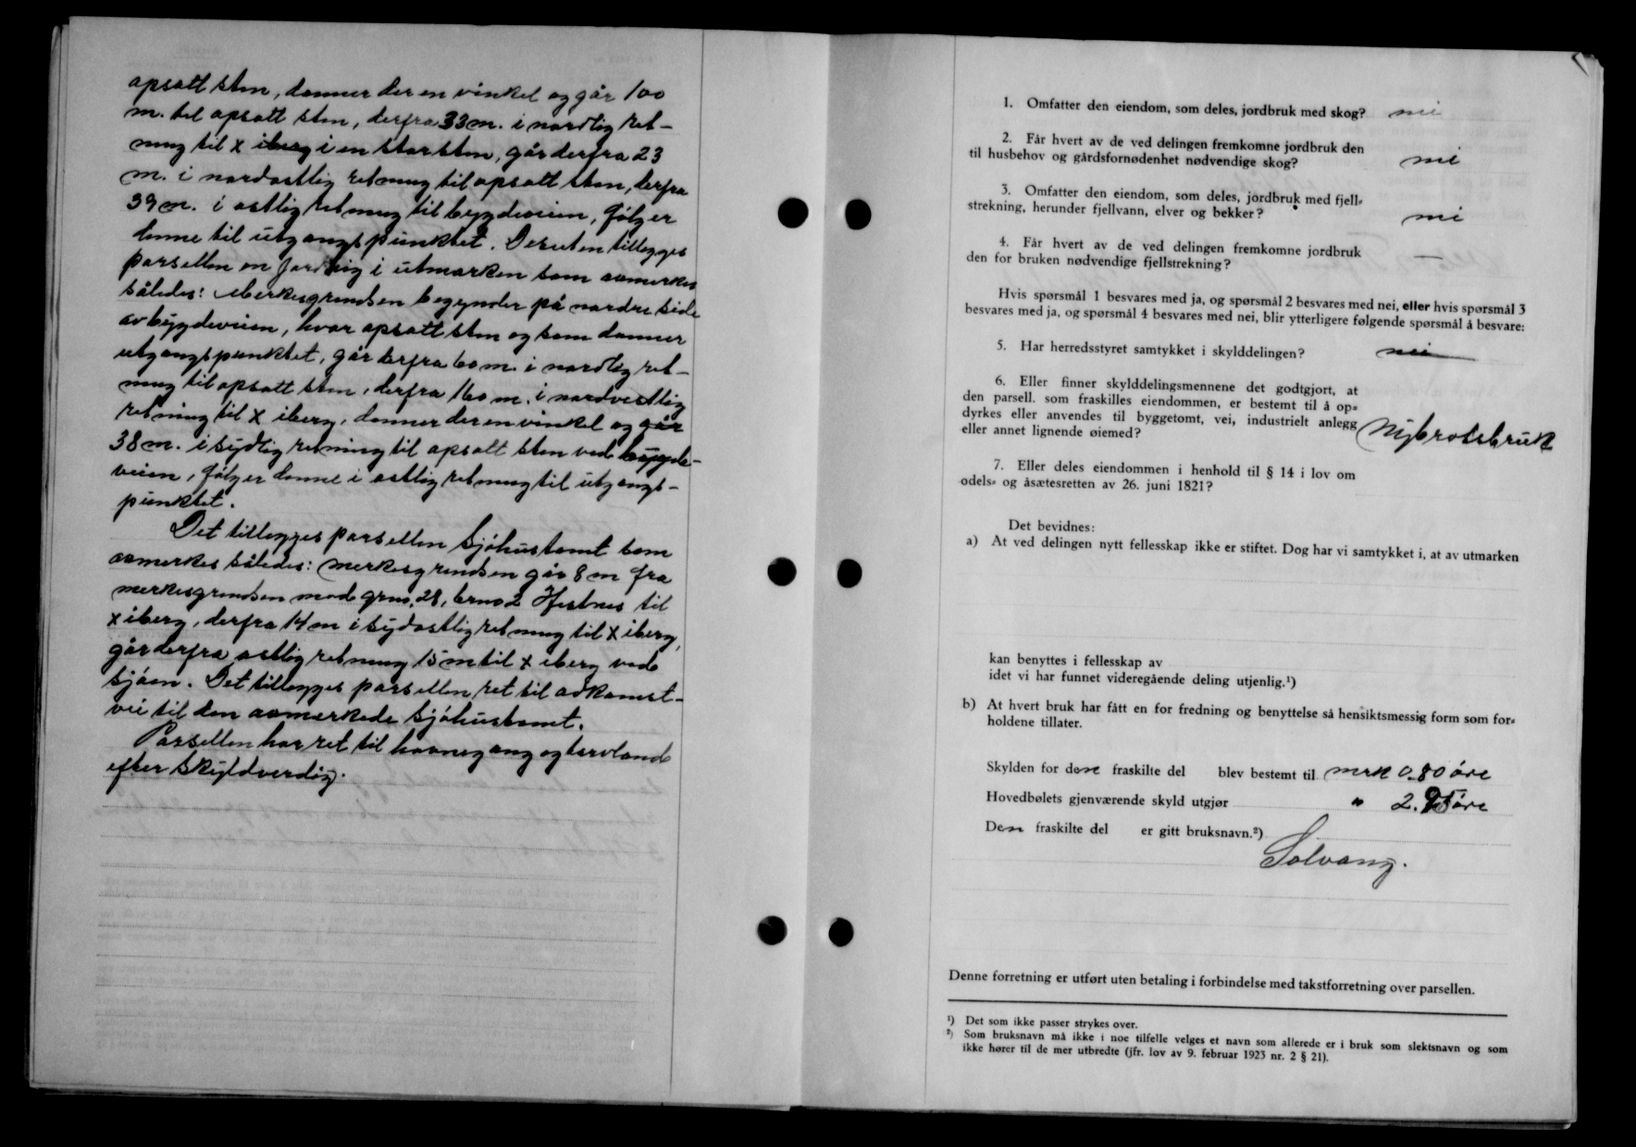 opsatt sten, danner der en vinkel og går 100
m. til opsatt sten, derfra 33 m. i nordlig ret-
ning til x iberg i en stor sten, går derfra 23
m. i nordostlig retning til opsatt sten, derfra
39 m. i ostlig retning til bygdeveien, følger
denne til utgangspunktet. Desuten tillegges
parsellen en jordteig i utmarken som avmerkes
således: Merkesgrendsen begynder på nordre side
av bygdeveien, hvor opsatt sten og som danner
utgangspunktet, går derfra 60 m. i nordlig ret-
ning til opsatt sten, derfra 160 m. i nordvestlig
retning til x iberg, danner der en vinkel og går
38 m. i sydlig retning til opsatt sten ved bygde-
veien, følger denne i ostlig retning til utgangs-
punktet.
Det tillegges parsellen Sjøhustomt som
avmerkes således: merkesgrendsen går 8 m fra
merkesgrendsen med grno. 28, brno 2 Hestnes til
x iberg, derfra 14 m i sydostlig retning til x iberg,
går derfra ostlig retning 15 m til x iberg ved
sjøen. Det tillegges parsellen ret til adkomst-
vei til den avmerkede sjøhustomt.
Parsellen har ret til havnegang og torvland
efter skyldverdig.
1. Omfatter den eiendom, som deles, jordbruk med skog? nei
2. Får hvert av de ved delingen fremkomne jordbruk den
til husbehov og gårdsfornødenhet nødvendige skog? nei
3. Omfatter den eiendom, som deles, jordbruk med fjell-
strekning, herunder fjellvann, elver og bekker? nei
4. Får hvert av de ved delingen fremkomne jordbruk
den for bruken nødvendige fjellstrekning? —
Hvis spørsmål 1 besvares med ja, og spørsmål 2 besvares med nei, eller hvis spørsmål 3
besvares med ja, og spørsmål 4 besvares med nei, blir ytterligere følgende spørsmål å besvare:
5. Har herredsstyret samtykket i skylddelingen? nei
6. Eller finner skylddelingsmennene det godtgjort, at
den parsell. som fraskilles eiendommen, er bestemt til å op-
dyrkes eller anvendes til byggetomt, vei, industrielt anlegg
eller annet lignende øiemed? Nybrotsbruk
7. Eller deles eiendommen i henhold til § 14 i lov om
odels- og åsætesretten av 26. juni 1821?
Det bevidnes:
a) At ved delingen nytt fellesskap ikke er stiftet. Dog har vi samtykket i, at av utmarken
kan benyttes i fellesskap av
idet vi har funnet videregående deling utjenlig.¹)
b) At hvert bruk har fått en for fredning og benyttelse så hensiktsmessig form som for-
holdene tillater.
Skylden for den fraskilte del blev bestemt til mrk 0.80 øre
Hovedbølets gjenværende skyld utgjør " 2.95 øre
Den fraskilte del er gitt bruksnavn.²)
Solvang.
Denne forretning er utført uten betaling i forbindelse med takstforretning over parsellen.
¹) Det som ikke passer strykes over.
²) Som bruksnavn må ikke i noe tilfelle velges et navn som allerede er i bruk som slektsnavn og som
ikke hører til de mer utbredte (jfr. lov av 9. februar 1923 nr. 2 § 21).